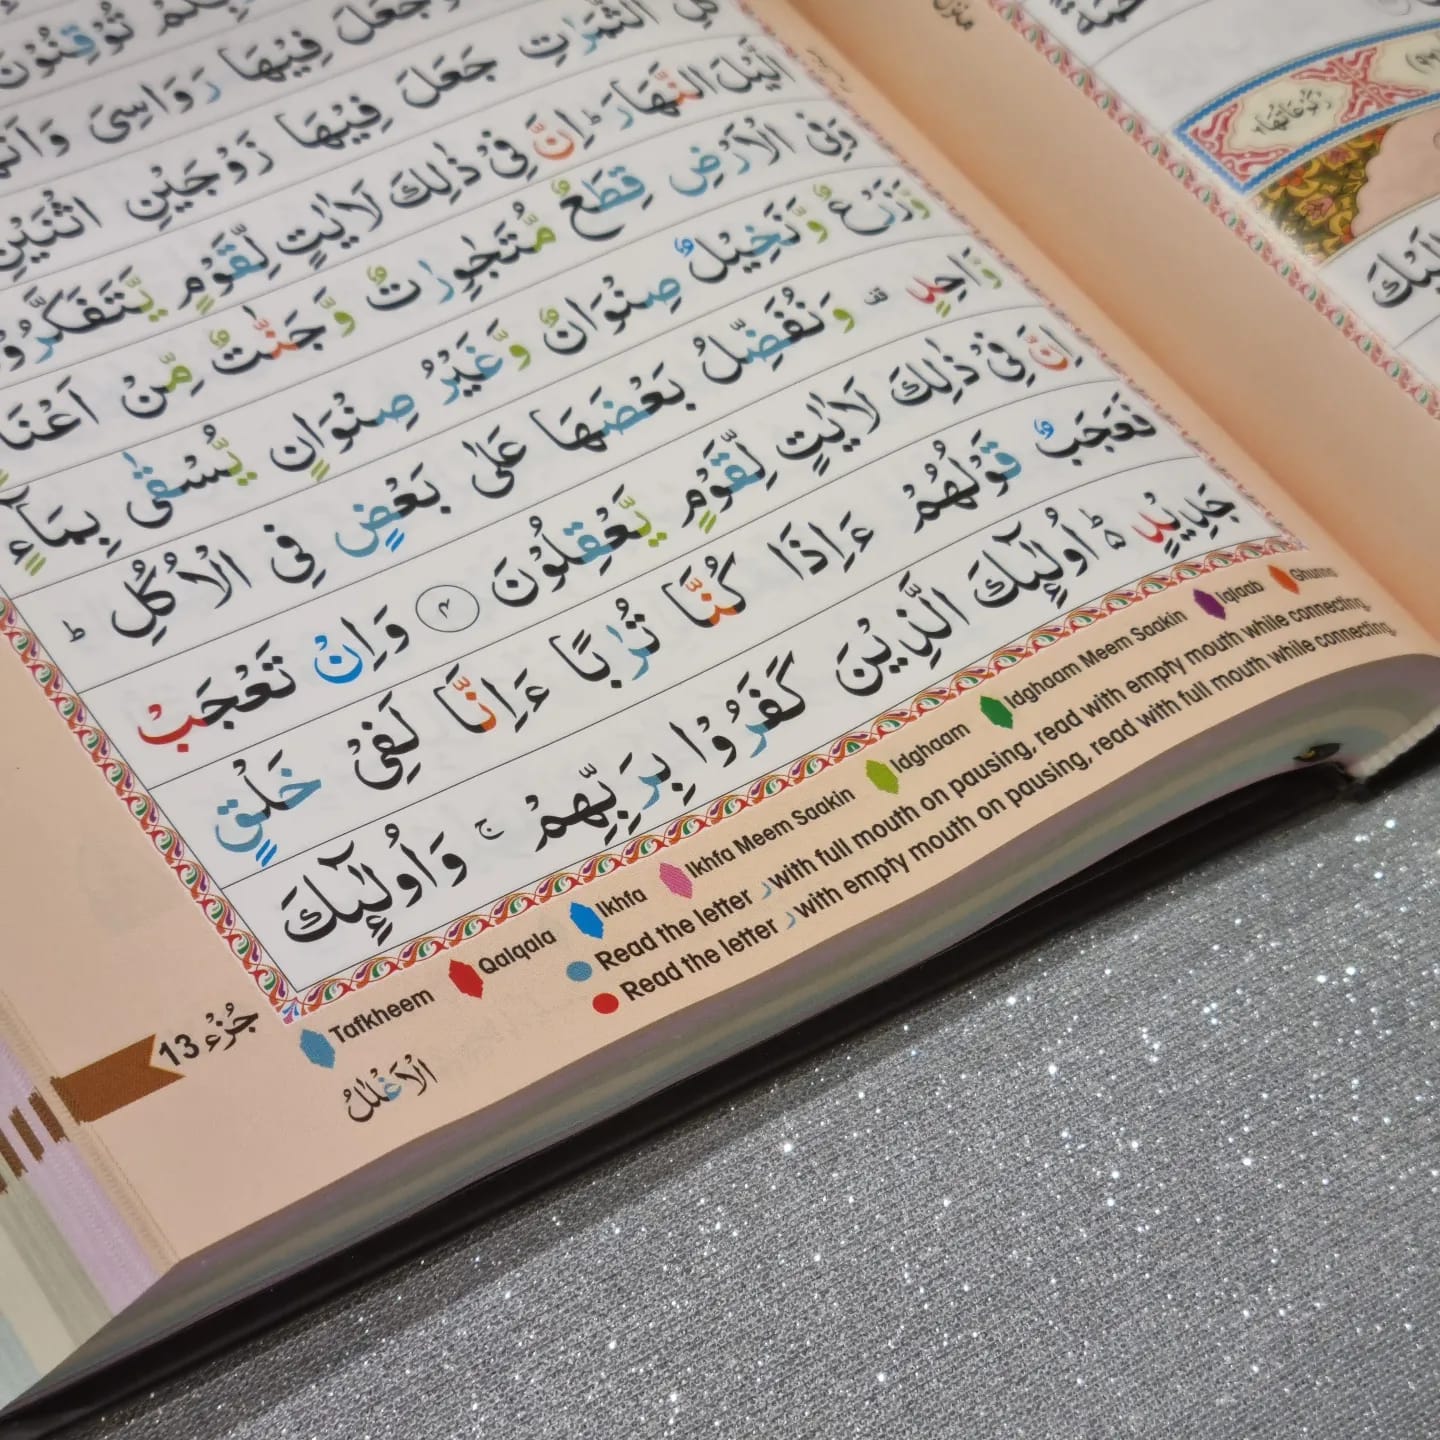 جَعَلَ فِيْهَا رَوَاسِىَ
الثَّمَرٰتِ جَعَلَ فِيْهَا زَوْجَيْنِ اثْنَيْنِ
الَّيْلَ النَّهَارَ ؕ اِنَّ فِىْ ذٰلِكَ لَاٰيٰتٍ لِّقَوْمٍ يَّتَفَكَّرُوْ
وَفِى الْاَرْضِ قِطَعٌ مُّتَجٰوِرٰتٌ وَّجَنّٰتٌ مِّنْ اَعْنَا
وَّزَرْعٌ وَّنَخِيْلٌ صِنْوَانٌ وَّغَيْرُ صِنْوَانٍ يُّسْقٰى بِمَآءٍ
وَّاحِدٍ ۚ وَنُفَضِّلُ بَعْضَهَا عَلٰى بَعْضٍ فِى الْاُكُلِ ؕ
اِنَّ فِىْ ذٰلِكَ لَاٰيٰتٍ لِّقَوْمٍ يَّعْقِلُوْنَ ۴ وَاِنْ تَعْجَبْ
فَعَجَبٌ قَوْلُهُمْ ءَاِذَا كُنَّا تُرٰبًا ءَاِنَّا لَفِىْ خَلْقٍ
جَدِيْدٍ ؕ اُولٰٓئِكَ الَّذِيْنَ كَفَرُوْا بِرَبِّهِمْ ۚ وَاُولٰٓئِكَ
الْاَغْلٰلُ
جُزْء 13
Tafkheem Qalqala Ikhfa Ikhfa Meem Saakin Idghaam Idghaam Meem Saakin Iqlaab Ghunna
Read the letter ر with full mouth on pausing, read with empty mouth while connecting.
Read the letter ر with empty mouth on pausing, read with full mouth while connecting.